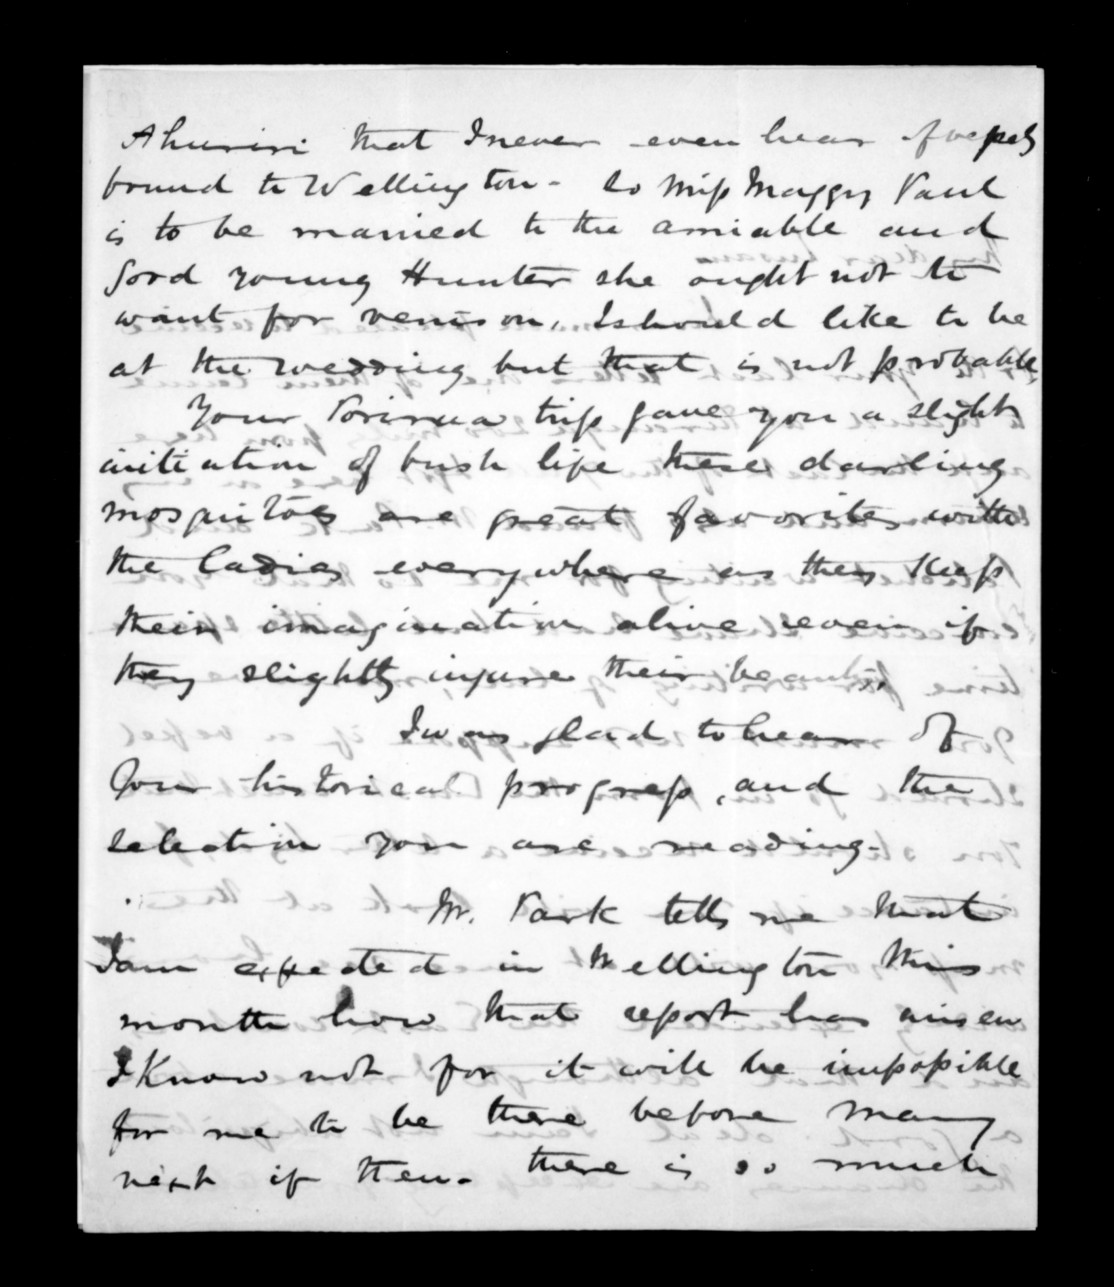 Ahuriri that I never even hear of vessels
bound to Wellington - So Miss Maggy Paul
is to be married to the amiable and
good young Hunter she ought not to
want for venison, I should like to be
at the wedding but that is not probable
Your Porirua trip gave you a slight
initiation of bush life these darling
mosquitoes are great favorites with
the ladies everywhere as they keep
their imagination alive even if
they slightly injure their beauty.
I was glad to hear of
your historical progress, and the
selection you are reading -
Mr. Park tells me that
I am expected in Wellington this
month how that report has arisen
I know not for it will be impossible
for me to be there before May
next if then - there is so much